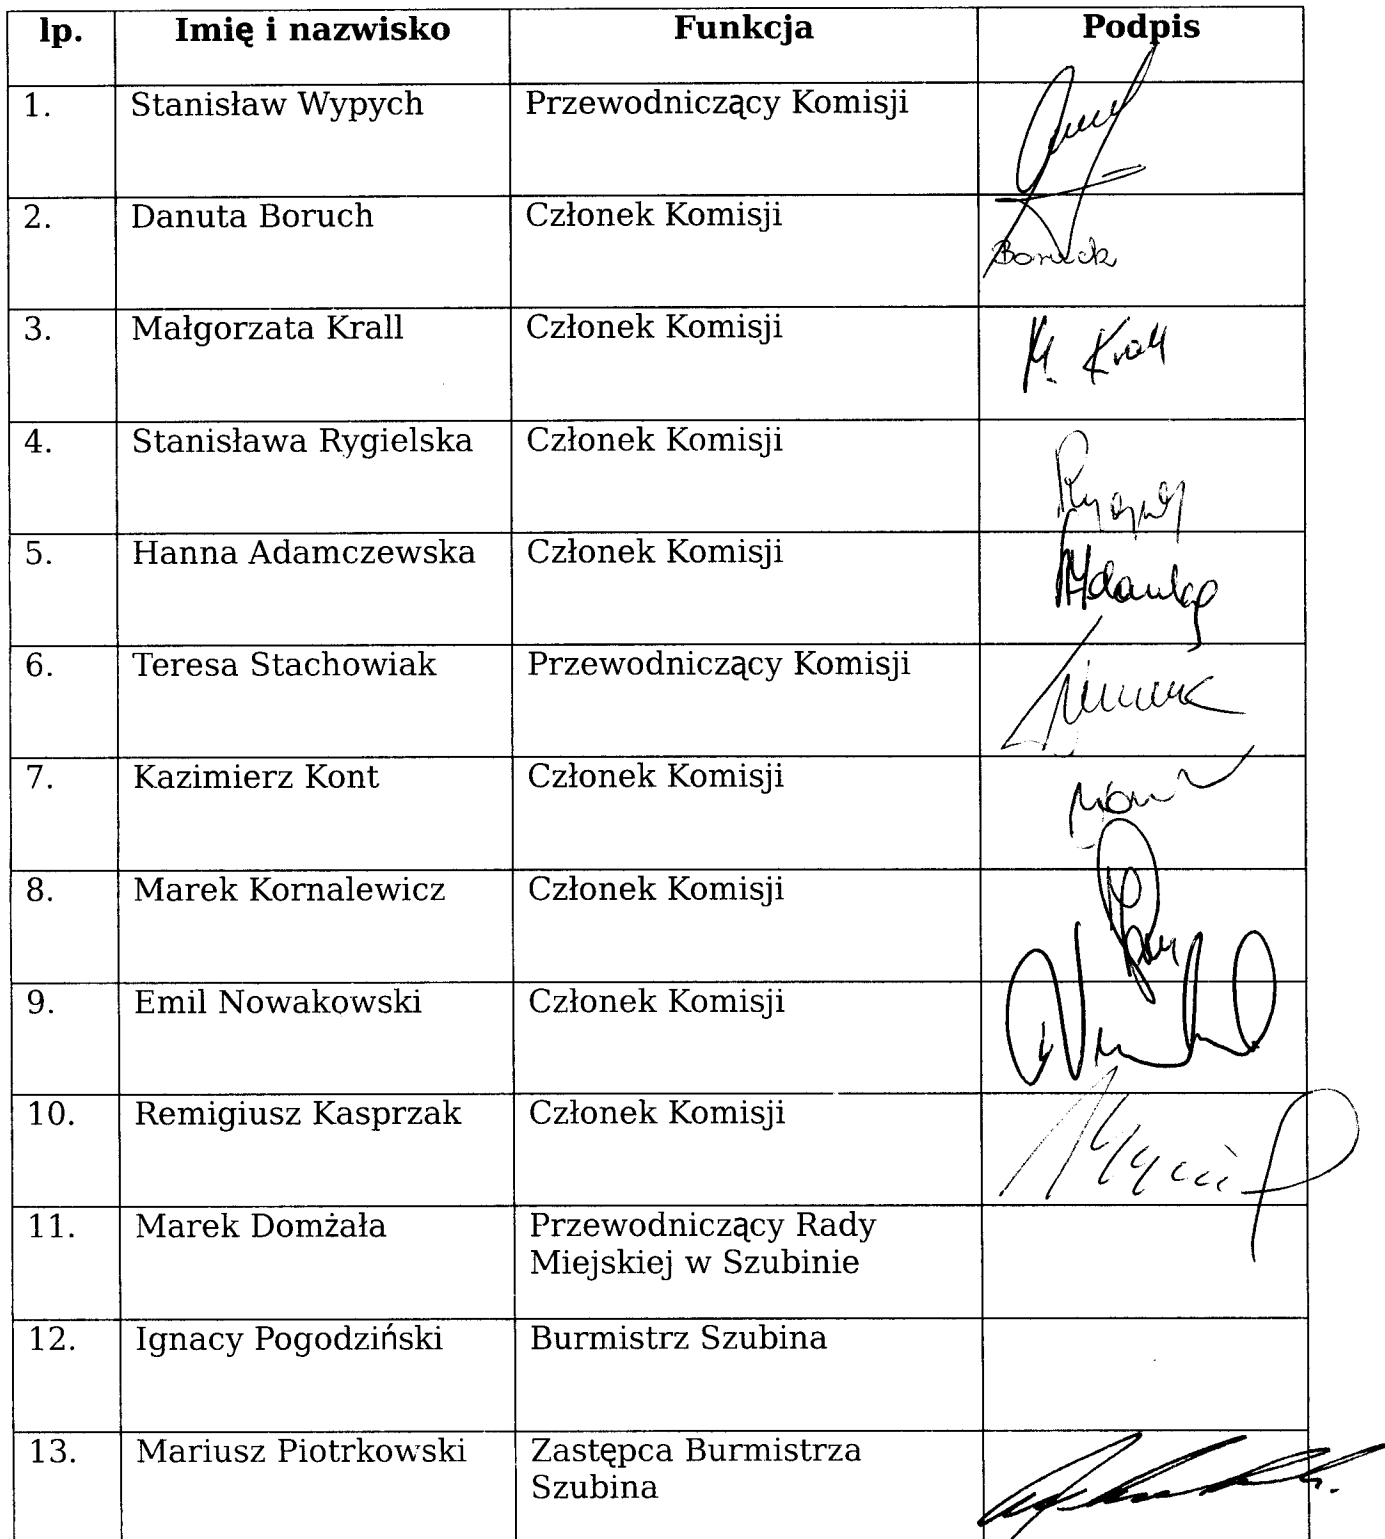 lp. Imię i nazwisko Funkcja Podpis
1. Stanisław Wypych Przewodniczący Komisji
2. Danuta Boruch Członek Komisji
Boruch
3. Małgorzata Krall Członek Komisji
M. Krall
4. Stanisława Rygielska Członek Komisji
5. Hanna Adamczewska Członek Komisji
6. Teresa Stachowiak Przewodniczący Komisji
7. Kazimierz Kont Członek Komisji
8. Marek Kornalewicz Członek Komisji
9. Emil Nowakowski Członek Komisji
10. Remigiusz Kasprzak Członek Komisji
11. Marek Domżała Przewodniczący Rady
Miejskiej w Szubinie
12. Ignacy Pogodziński Burmistrz Szubina
13. Mariusz Piotrkowski Zastępca Burmistrza
Szubina